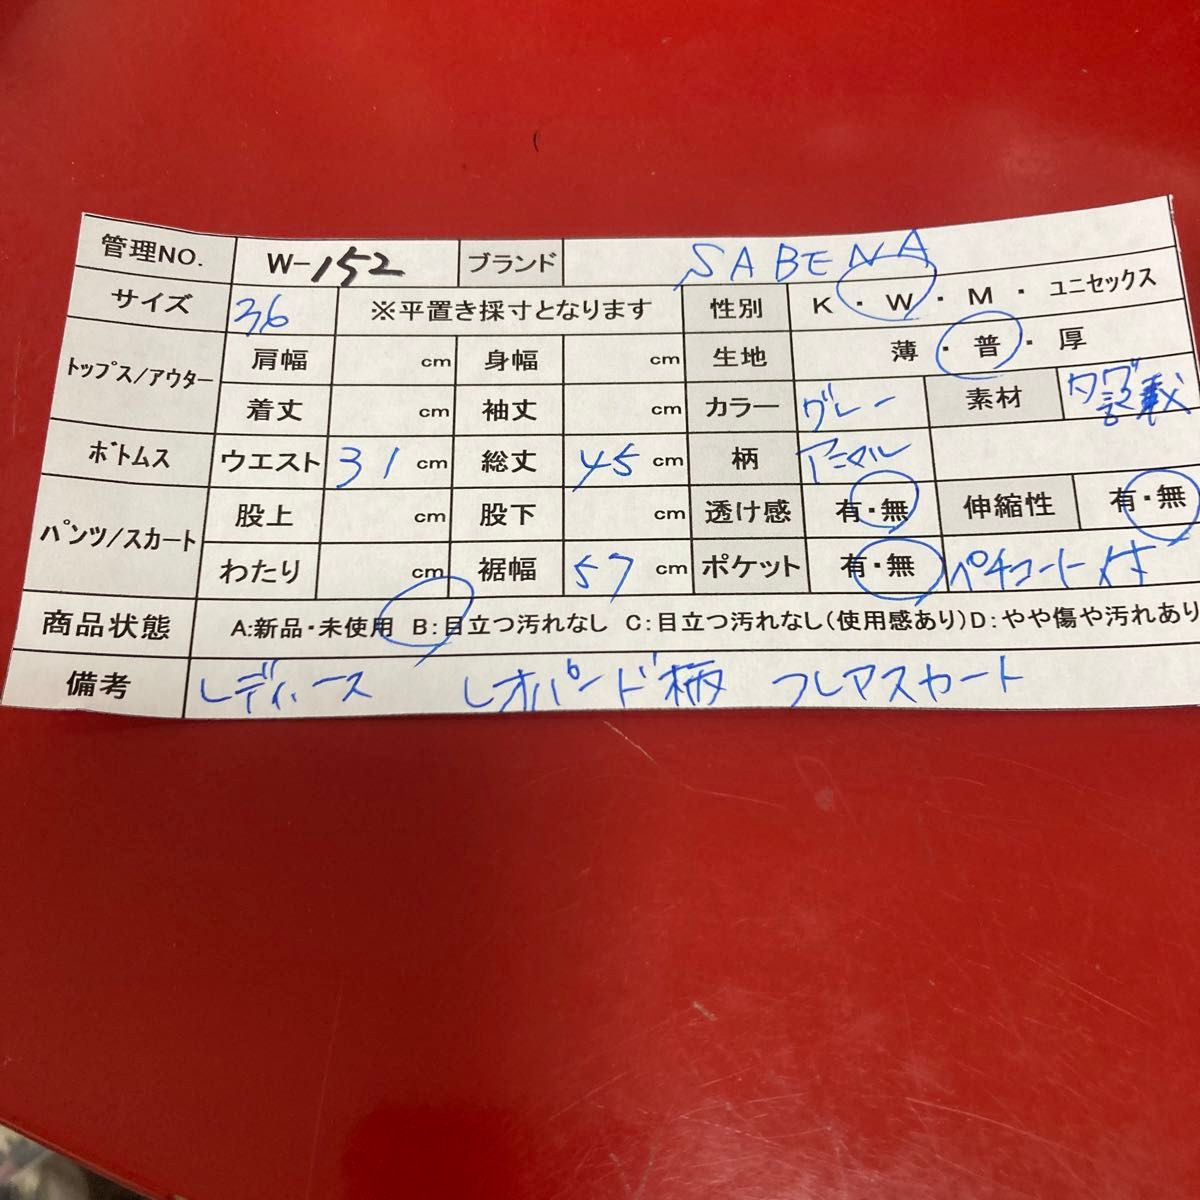 管理NO. W-152 ブランド SABENA
サイズ 36 ※平置き採寸となります 性別 K・W・M・ユニセックス
トップス/アウター 肩幅 cm 身幅 cm 生地 薄・普・厚
着丈 cm 袖丈 cm カラー グレー 素材 タグ記載
ボトムス ウエスト 31 cm 総丈 45 cm 柄 アニマル
パンツ/スカート 股上 cm 股下 cm 透け感 有・無 伸縮性 有・無
わたり cm 裾幅 57 cm ポケット 有・無 ペチコート付
商品状態 A:新品・未使用 B:目立つ汚れなし C:目立つ汚れなし(使用感あり) D:やや傷や汚れあり
備考 レディース レオパード柄 フレアスカート